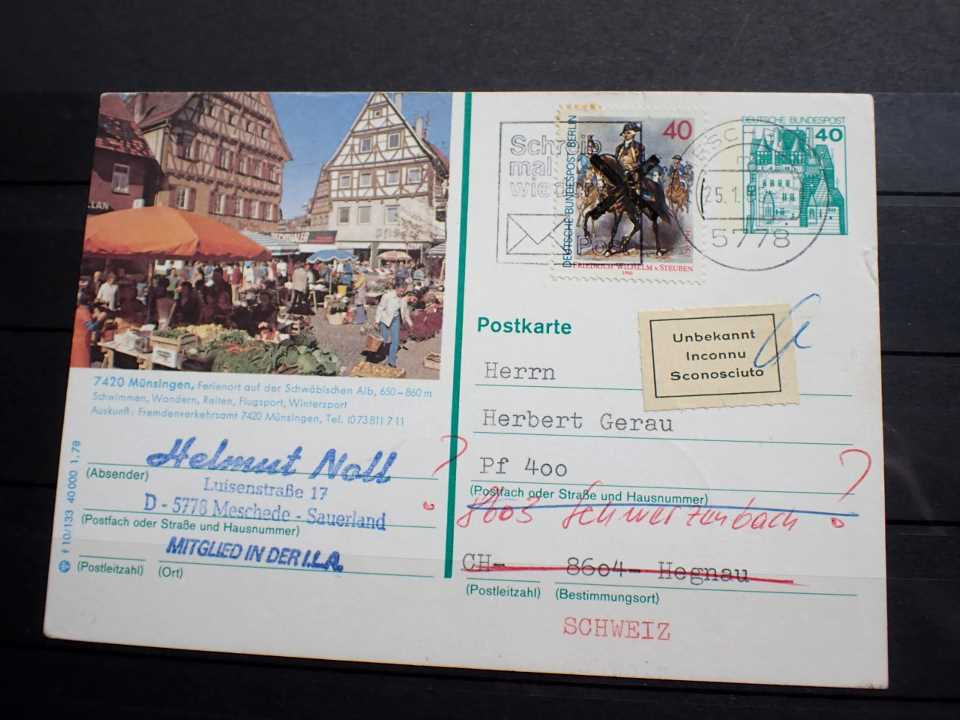 LLAN
7420 Münsingen, Ferienort auf der Schwäbischen Alb, 650–860 m
Schwimmen, Wandern, Reiten, Flugsport, Wintersport
Auskunft: Fremdenverkehrsamt 7420 Münsingen, Tel. (07381) 711
Helmut Noll
(Absender)
Luisenstraße 17
D - 5778 Meschede - Sauerland
(Postfach oder Straße und Hausnummer)
MITGLIED IN DER I.L.A.
(Postleitzahl) (Ort)
f 10/133 40 000 1.79
Schreib
mal
wieder
Post
DEUTSCHE BUNDESPOST BERLIN
40
FRIEDRICH WILHELM v. STEUBEN
1980
25.1.
5778
DEUTSCHE BUNDESPOST
40
Postkarte
Unbekannt
Inconnu
Sconosciuto
Herrn
Herbert Gerau
Pf 400
(Postfach oder Straße und Hausnummer)
? ?
8603 Schwerzenbach
CH- 8604- Hegnau
(Postleitzahl) (Bestimmungsort)
SCHWEIZ